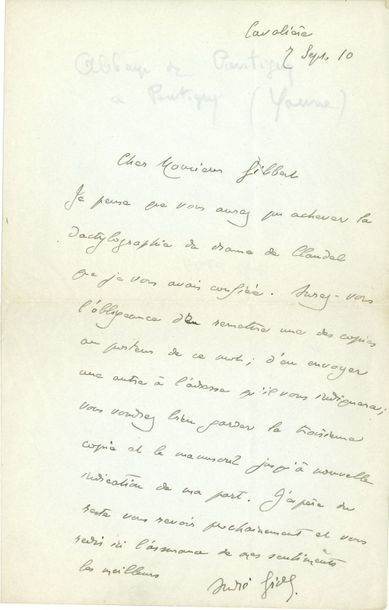 Cavalière
7 Sept. 10
Abbaye de Pontigny
à Pontigny (Yonne)
Cher Monsieur Gilbert
Je pense que vous aurez pu achever la
dactylographie du drame de Claudel
que je vous avais confiée. Aurez-vous
l'obligeance d'en remettre une des copies
au porteur de ce mot; d'en envoyer
une autre à l'adresse qu'il vous indiquera;
vous voudrez bien garder la troisième
copie et le manuscrit jusqu'à nouvelle
indication de ma part. J'espère du
reste vous revoir prochainement et vous
redis ici l'assurance de mes sentiments
les meilleurs
André Gide